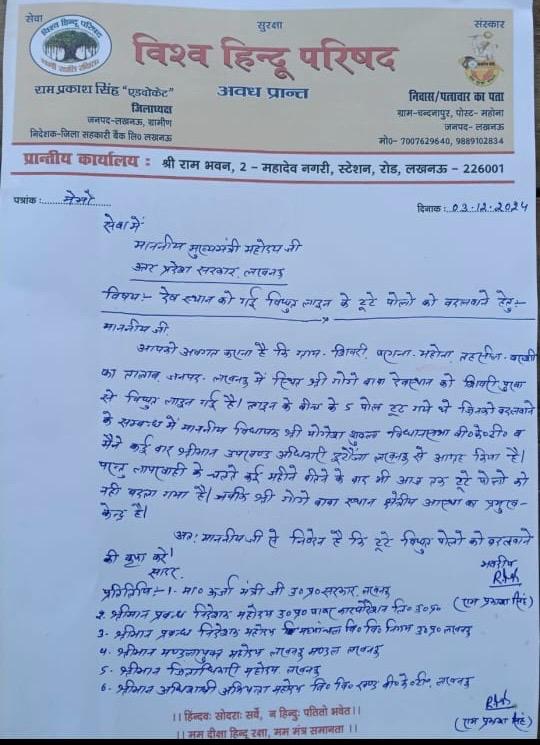 सेवा
सुरक्षा
संस्कार
विश्व हिन्दू परिषद
विश्व हिन्दू परिषद
अवध प्रान्त
राम प्रकाश सिंह "एडवोकेट"
जिलाध्यक्ष
जनपद-लखनऊ, ग्रामीण
निदेशक-जिला सहकारी बैंक लि० लखनऊ
निवास/पत्राचार का पता
ग्राम-चन्दनापुर, पोस्ट- महोना
जनपद- लखनऊ
मो०- 7007629640, 9889102834
प्रान्तीय कार्यालय : श्री राम भवन, 2 - महादेव नगरी, स्टेशन, रोड, लखनऊ - 226001
पत्रांक : मेमो
दिनाक : 03.12.2024
सेवा में
माननीय मुख्यमंत्री महोदय जी
उत्तर प्रदेश सरकार, लखनऊ
विषय :- देव स्थान को गई विधुत लाइन के टूटे पोलो को बदलवाने हेतु :-
माननीय जी
आपको अवगत कराना है कि ग्राम- परगना- महोना, तहसील- बख्शी
का तालाब, जनपद- लखनऊ में स्थित श्री गोगे बाबा देवस्थान को पुरवा
से विधुत लाइन गई है। लाइन के बीच के 5 पोल टूट गये थे जिनको बदलवाने
के सम्बन्ध में माननीय विधायक श्री योगेश शुक्ल विधानसभा बी०के०टी० व
मैने कई बार श्रीमान उपखण्ड अधिकारी लखनऊ से आग्रह किया है।
परन्तु लापरवाही के चलते कई महीने बीतने के बाद भी आज तक टूटे पोलो को
नही बदला गया है। जबकि श्री गोगे बाबा स्थान क्षेत्रीय आस्था का प्रमुख-
केन्द्र है।
अतः माननीय जी से निवेदन है कि टूटे विधुत पोलो को बदलवाने
की कृपा करे।
सादर
भवदीय
(राम प्रकाश सिंह)
प्रतिलिपि :- 1- मा० ऊर्जा मंत्री जी उ०प्र० सरकार, लखनऊ
2. श्रीमान प्रबन्ध निदेशक महोदय उ०प्र० पावर कारपोरेशन लि० उ०प्र०
3- श्रीमान प्रबन्ध निदेशक महोदय मध्यांचल वि० वि० निगम उ०प्र० लखनऊ
4. श्रीमान मण्डलायुक्त महोदय लखनऊ मण्डल लखनऊ
5- श्रीमान जिलाधिकारी महोदय लखनऊ
6- श्रीमान अधिशाषी अभियन्ता महोदय वि० वि० खण्ड बी०के०टी०, लखनऊ
(राम प्रकाश सिंह)
।। हिन्दवः सोदराः सर्वे, न हिन्दुः पतितो भवेत।।
।। मम दीक्षा हिन्दू रक्षा, मम मंत्र समानता ।।